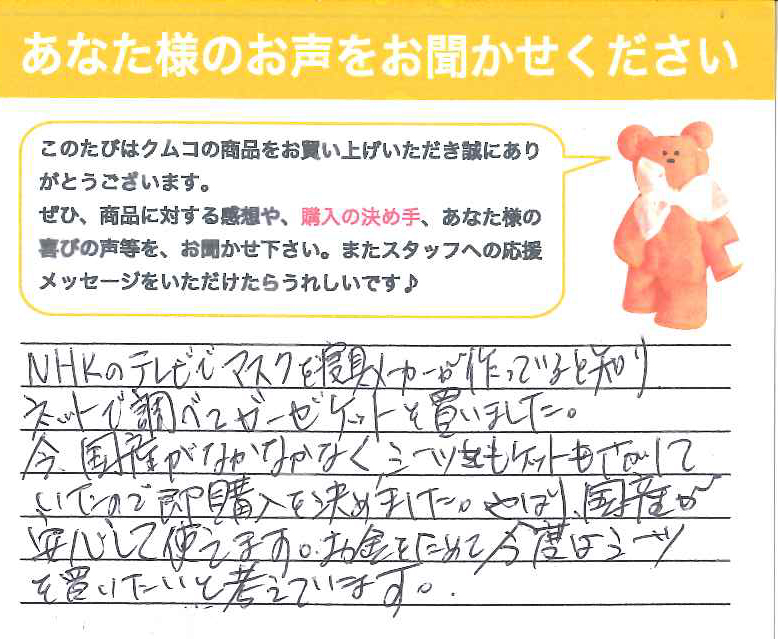 あなた様のお声をお聞かせください
このたびはクムコの商品をお買い上げいただき誠にあり
がとうございます。
ぜひ、商品に対する感想や、購入の決め手、あなた様の
喜びの声等を、お聞かせ下さい。またスタッフへの応援
メッセージをいただけたらうれしいです♪
NHKのテレビでマスクを寝具メーカーが作っていると知り
ネットで調べてガーゼケットを買いました。
今、国産がなかなかなく、シーツもケットもさがして
いたので即購入を決めました。やはり、国産が
安心して使えます。お金をためて今度はシーツ
を買いたいと考えています。